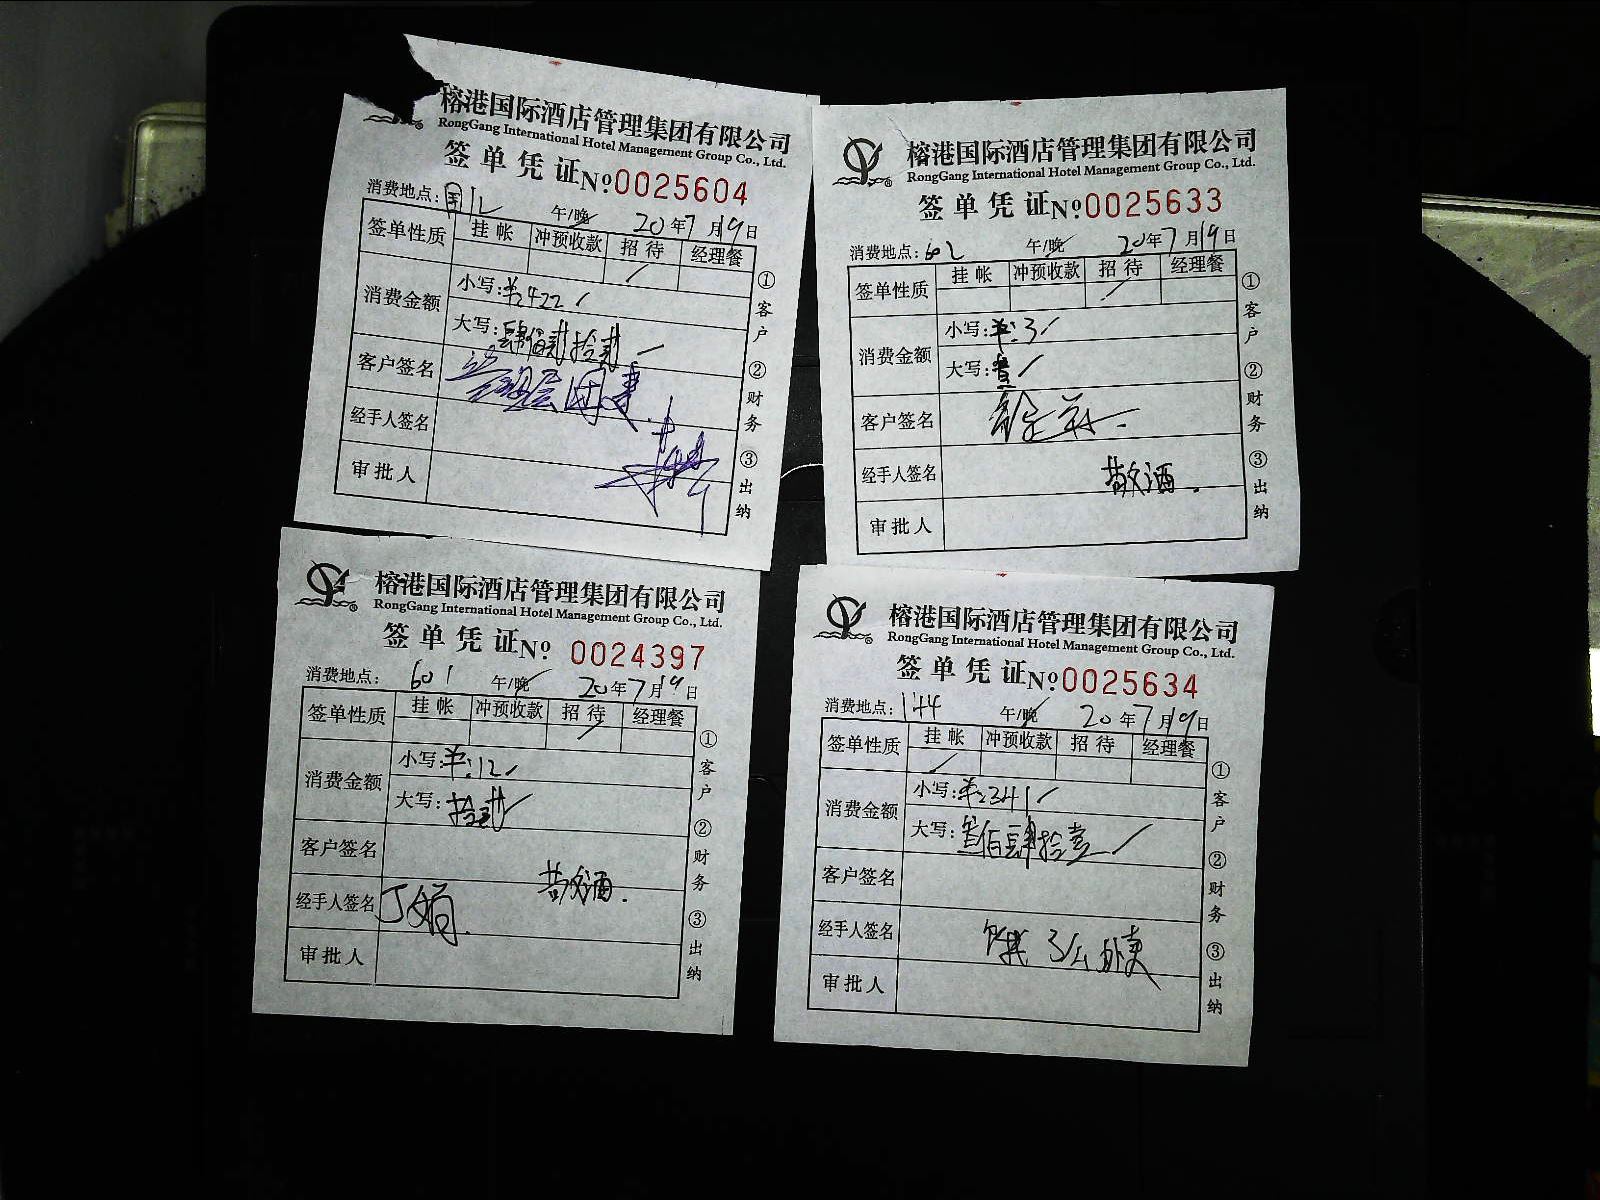 榕港国际酒店管理集团有限公司
RongGang International Hotel Management Group Co., Ltd.
签单凭证 Nº 0025604
消费地点: 午/晚 20年7月19日
签单性质 挂帐 冲预收款 招待 经理餐
消费金额 小写:¥:422
大写:肆佰贰拾贰
客户签名 管理层团建
经手人签名
审批人
①客户 ②财务 ③出纳
榕港国际酒店管理集团有限公司
RongGang International Hotel Management Group Co., Ltd.
签单凭证 Nº 0025633
消费地点:602 午/晚 20年7月19日
签单性质 挂帐 冲预收款 招待 经理餐
消费金额 小写:¥:3
大写:叁
客户签名
经手人签名 敬酒.
审批人
①客户 ②财务 ③出纳
榕港国际酒店管理集团有限公司
RongGang International Hotel Management Group Co., Ltd.
签单凭证 Nº 0024397
消费地点: 601 午/晚 20年7月19日
签单性质 挂帐 冲预收款 招待 经理餐
消费金额 小写:¥:12
大写:拾贰
客户签名 敬酒.
经手人签名 丁娟
审批人
①客户 ②财务 ③出纳
榕港国际酒店管理集团有限公司
RongGang International Hotel Management Group Co., Ltd.
签单凭证 Nº 0025634
消费地点:144 午/晚 20年7月19日
签单性质 挂帐 冲预收款 招待 经理餐
消费金额 小写:¥:341
大写:叁佰肆拾壹
客户签名
经手人签名 饿了么外卖
审批人
①客户 ②财务 ③出纳